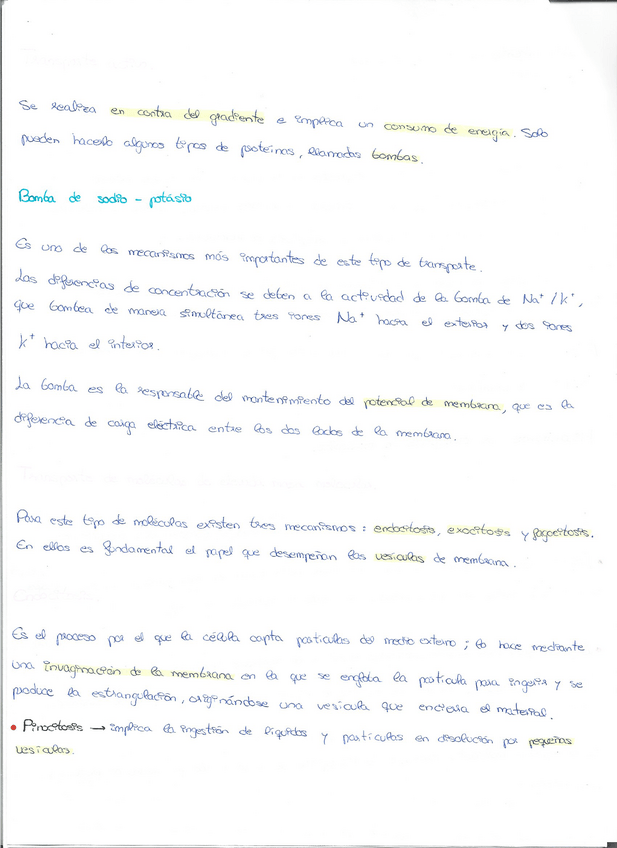 Se realiza en contra del gradiente e implica un consumo de energía. Solo
pueden hacerlo algunos tipos de proteínas, llamadas bombas.
Bomba de sodio - potásio
Es uno de los mecanismos más importantes de este tipo de transporte.
Las diferencias de concentración se deben a la actividad de la bomba de Na⁺/K⁺,
que bombea de manera simultánea tres iones Na⁺ hacia el exterior y dos iones
K⁺ hacia el interior.
La bomba es la responsable del mantenimiento del potencial de membrana, que es la
diferencia de carga eléctrica entre los dos lados de la membrana.
Para este tipo de moléculas existen tres mecanismos: endocitosis, exocitosis y fagocitosis.
En ellos es fundamental el papel que desempeñan las vesículas de membrana.
Es el proceso por el que la célula capta partículas del medio externo; lo hace mediante
una invaginación de la membrana en la que se engloba la partícula para ingerir y se
produce la estrangulación, originándose una vesícula que encierra el material.
• Pinocitosis → implica la ingestión de líquidos y partículas en disolución por pequeñas
vesículas.